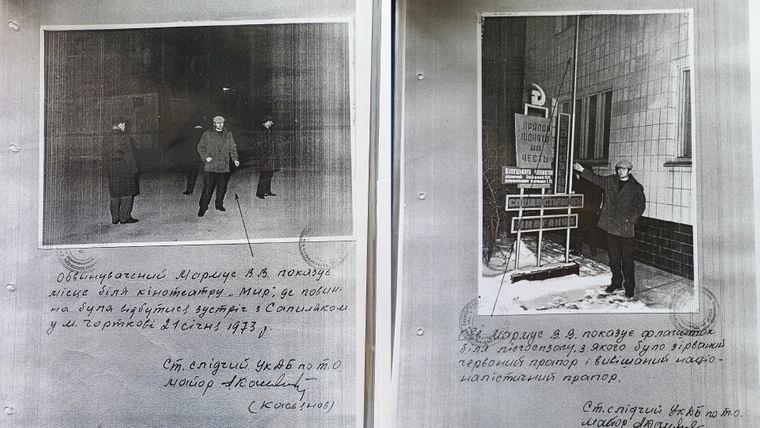 Обвинувачений Мармус В.В. показує
місце біля кінотеатру „Мир", де повин-
на була відбутись зустріч з Сапиляком
у м. Чорткові 21 січня 1973 р.
Ст. слідчий УКДБ по Т.О
майор
(Касьянов)
ПРАПОР
ПІДНЯТО
НА
ЧЕСТЬ
Обв. Мармус В.В. показує флагшток
біля лісгоспзагу, з якого було зірваний
червоний прапор і вивішаний націо-
налістичний прапор.
Ст. слідчий УКДБ по Т.О.
майор